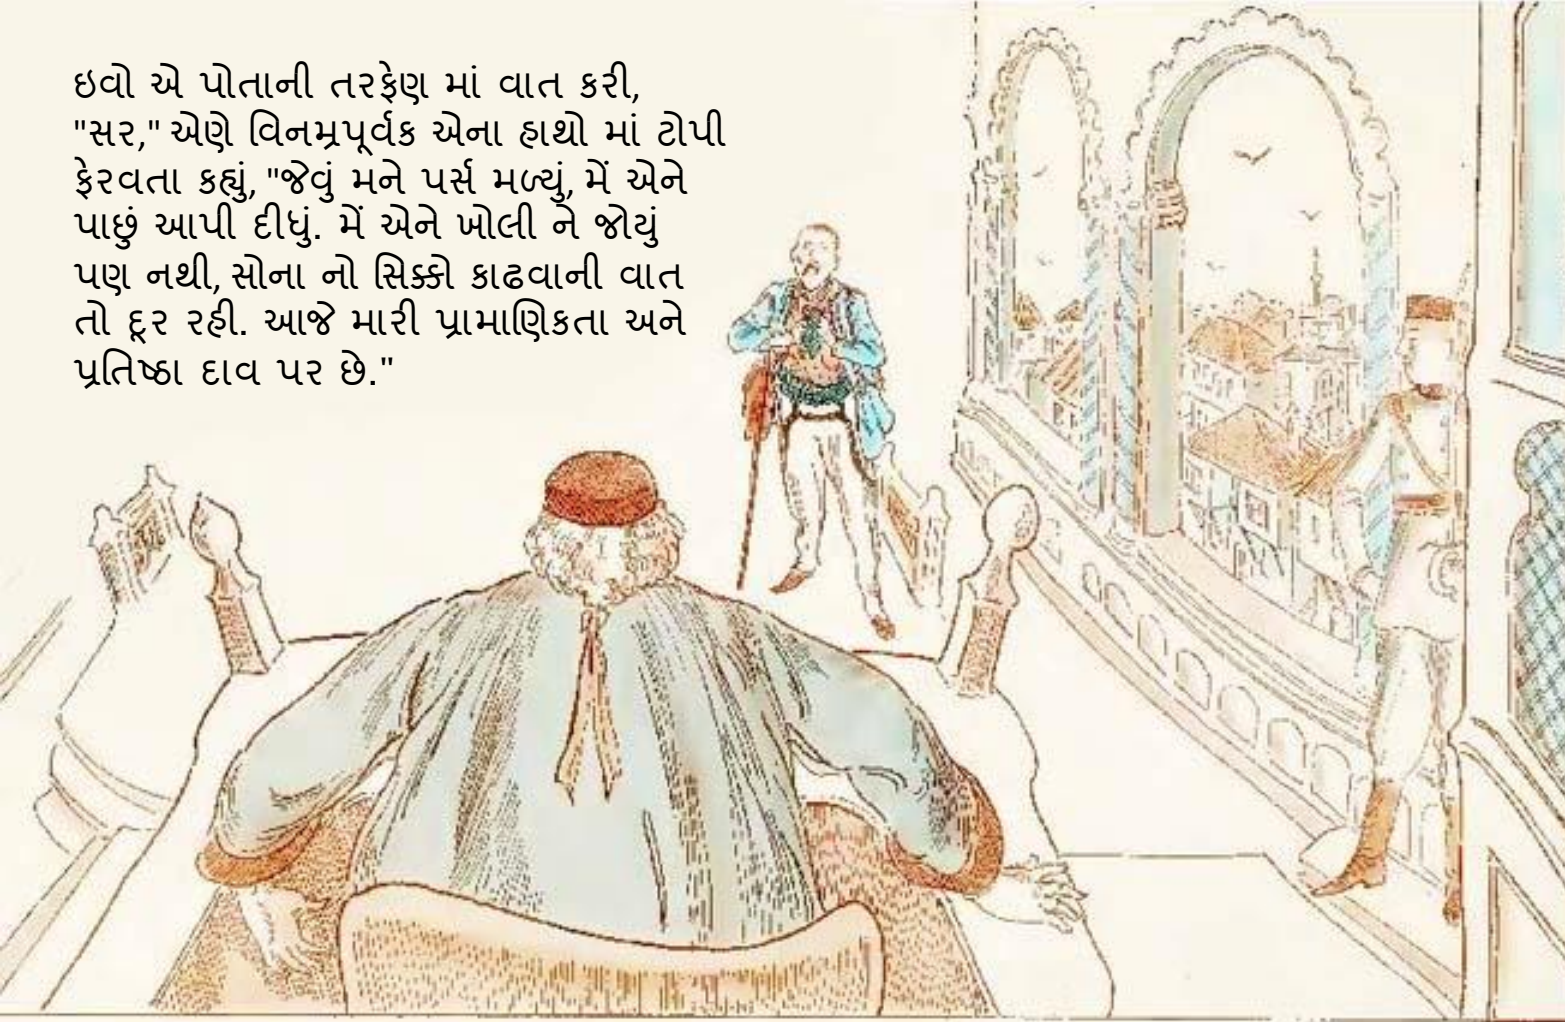 ઇવો એ પોતાની તરફેણ માં વાત કરી,
"સર," એણે વિનમ્રપૂર્વક એના હાથો માં ટોપી
ફેરવતા કહ્યું, "જેવું મને પર્સ મળ્યું, મેં એને
પાછું આપી દીધું. મેં એને ખોલી ને જોયું
પણ નથી, સોના નો સિક્કો કાઢવાની વાત
તો દૂર રહી. આજે મારી પ્રામાણિકતા અને
પ્રતિષ્ઠા દાવ પર છે."